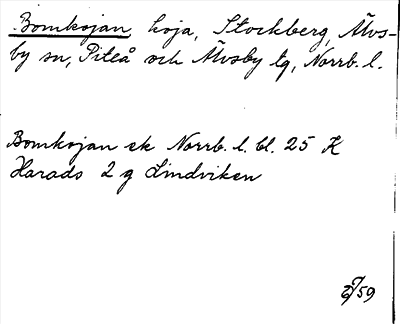 Bomkojan, koja, Stockberg, Älvs-
by sn, Piteå och Älvsby tg, Norrb. l.
Bomkojan ek Norrb. l. bl. 25 K
Harads 2 g Lindviken
59